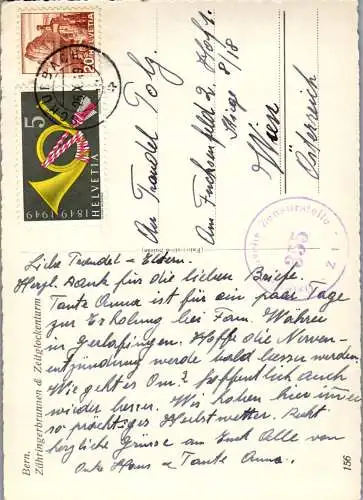 HELVETIA
20
5
HELVETIA
1849 1949
Am Fuchsenfeld 2. Hof
Stiege 8/8
Wien
Österreich
Zensurstelle
355
Liebe Trandel + Eltern.
Herzl. Dank für die lieben Briefe.
Tante Anna ist für ein paar Tage
zur Erholung bei Fam.
in Gerlafingen. Hoffe die Nerven-
entzündung werde bald besser werden.
Wie geht es Hoffentlich auch
wieder besser. Wir haben hier immer
so prächtiges Herbstwetter. Recht
herzliche Grüsse an Euch Alle von
Onk Hans + Tante Anna.
Bern.
Zähringerbrunnen & Zeitglockenturm
156